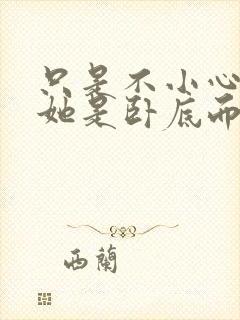 只是不小心
她是卧底而
西蘭